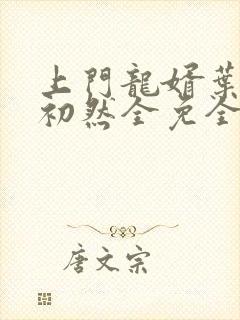 上門龍婿葉
初然全免全
唐文宗